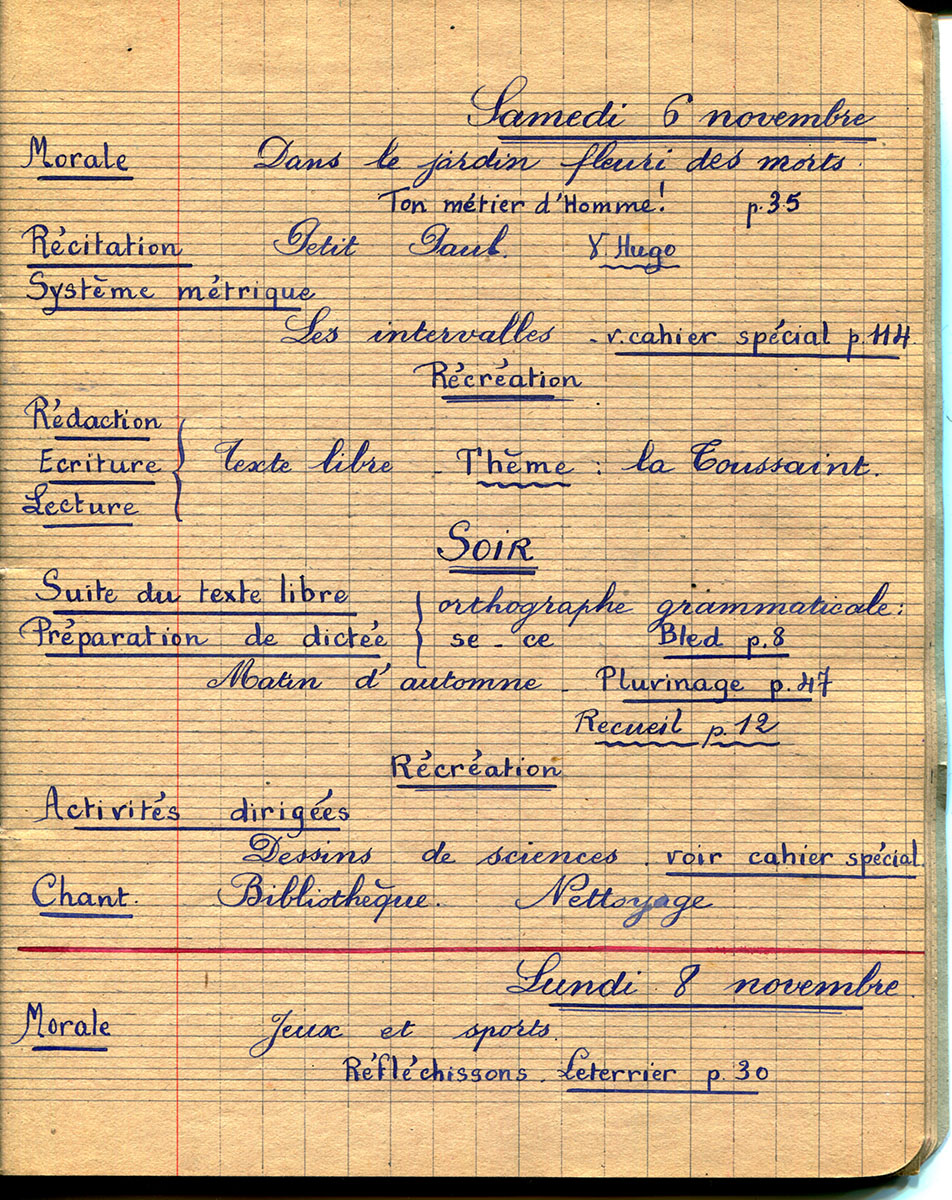 Samedi 6 novembre
Morale Dans le jardin fleuri des morts.
Ton métier d'Homme! p.35
Récitation Petit Paul. V Hugo
Système métrique
Les intervalles - v. cahier spécial p.114
Récréation
Rédaction
Ecriture Texte libre - Thème : la Toussaint.
Lecture
SOIR
Suite du texte libre orthographe grammaticale :
Préparation de dictée se - ce Bled p.8
Matin d'automne - Pluvinage p.47
Recueil p.12
Récréation
Activités dirigées
Dessins de sciences. voir cahier spécial.
Chant. Bibliothèque. Nettoyage
Lundi 8 novembre.
Morale Jeux et sports.
Réfléchissons. Leterrier p.30